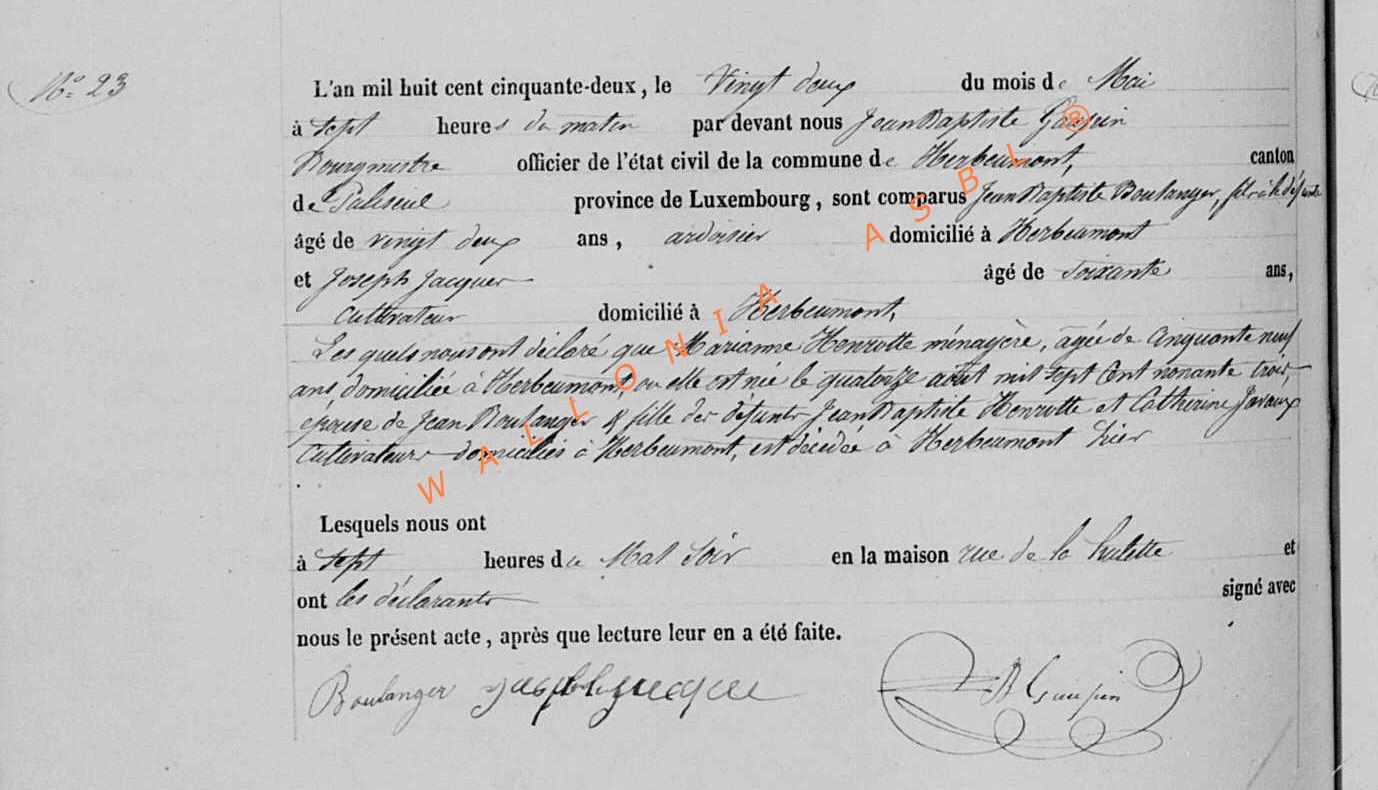 N° 23
L'an mil huit cent cinquante-deux, le Vingt deux du mois de Mai
à Sept heures du matin par devant nous Jean Baptiste
Bourgmestre officier de l'état civil de la commune de Herbeumont, canton
de Paliseul province de Luxembourg, sont comparus Jean Baptiste Boulanger, fils de la défunte
âgé de vingt deux ans, ardoisier domicilié à Herbeumont
et Joseph Jacques âgé de Soixante ans,
Cultivateur domicilié à Herbeumont,
Les quels nous ont déclaré que Marianne Henrotte ménagère, agée de Cinquante neuf
ans domiciliée à Herbeumont, ou elle est née le quatorze août mil sept Cent nonante trois,
épouse de Jean Boulanger & fille des défunts Jean Baptiste Henrotte et Catherine
Cultivateurs domiciliés à Herbeumont, est décédée à Herbeumont hier
Lesquels nous ont
à Sept heures du soir en la maison rue de la hulette et
ont les déclarants signé avec
nous le présent acte, après que lecture leur en a été faite.
Boulanger
WALLONIA ASBL ®